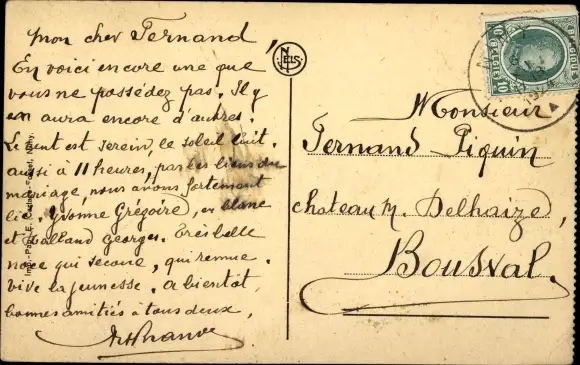 Mon cher Fernand!
En voici encore une que
vous ne possédez pas. Il y
en aura encore d'autres.
Le tout est serein, le soleil luit.
aussi à 11 heures, par les liens du
mariage, nous avons fortement
lié. Yvonne Grégoire, en blanc
et Halland Georges. Très belle
noce qui secoue, qui remue.
vive la jeunesse. A bientôt,
bonnes amitiés à tous deux,
NELS
BELGIQUE
BELGIË
10 10
Monsieur
Fernand Piquin
chateau M. Delhaize,
Bousval.